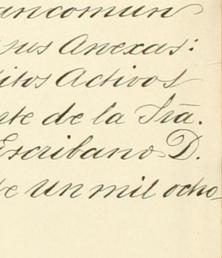 ancomun
sus Anexas:
ditos Activos
nte de la Sra.
Escribano D.
de un mil ocho-